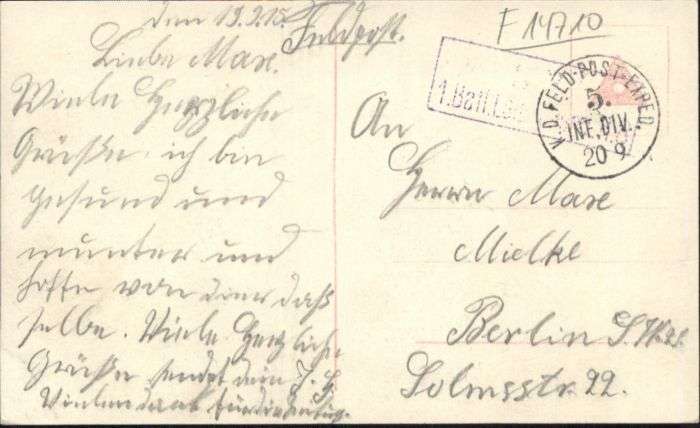 den 19.9.15.
Feldpost.
Liebe Max.
Viele Herzliche
Grüße, ich bin
gesund und
munter und
hoffe von dier daß
selbe. Viele Herzliche
Grüße sendet dein
Vielen dank für die
F 14710
1. Batl.
K.D. FELD-POST-EXPED.
5.
INF. DIV.
20 9
An
Herrn Max
Mielke
Berlin S.W.
Solmsstr. 22.